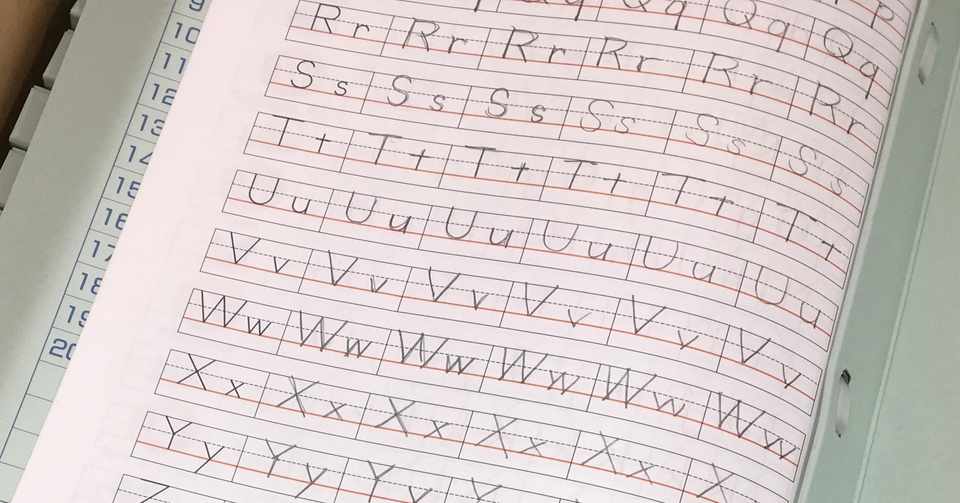 Qq Qq Qq Qq p
Rr Rr Rr Rr Rr Rr
Ss Ss Ss Ss Ss Ss
Tt Tt Tt Tt Tt Tt
Uu Uu Uu Uu Uu Uu
Vv Vv Vv Vv Vv Vv
Ww Ww Ww Ww Ww Ww
Xx Xx Xx Xx Xx X
Yy Yy Yy
9
10
11
12
13
14
15
16
17
18
19
20